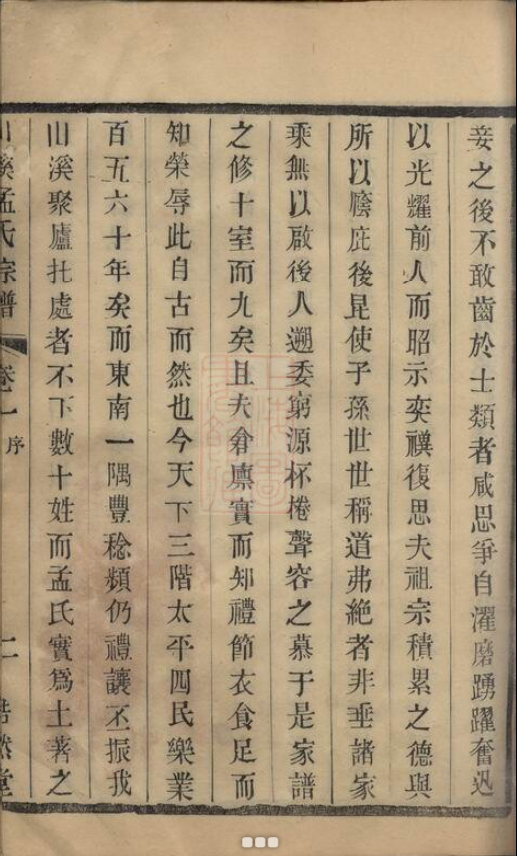 妾之後不敢齒於士類者咸思爭自濯磨踴躍奮迅
以光耀前人而昭示奕禩復思夫祖宗積累之德與
所以廕庇後昆使子孫世世稱道弗絶者非垂諸家
乘無以啟後人遡委窮源杯棬聲容之慕于是家譜
之修十室而九矣且夫倉廪實而知禮節衣食足而
知榮辱此自古而然也今天下三階太平四民樂業
百五六十年矣而東南一隅豐稔頻仍禮讓丕振我
山溪聚廬托處者不下數十姓而孟氏實爲土著之
山溪孟氏宗譜 卷一 序 二 浩然堂